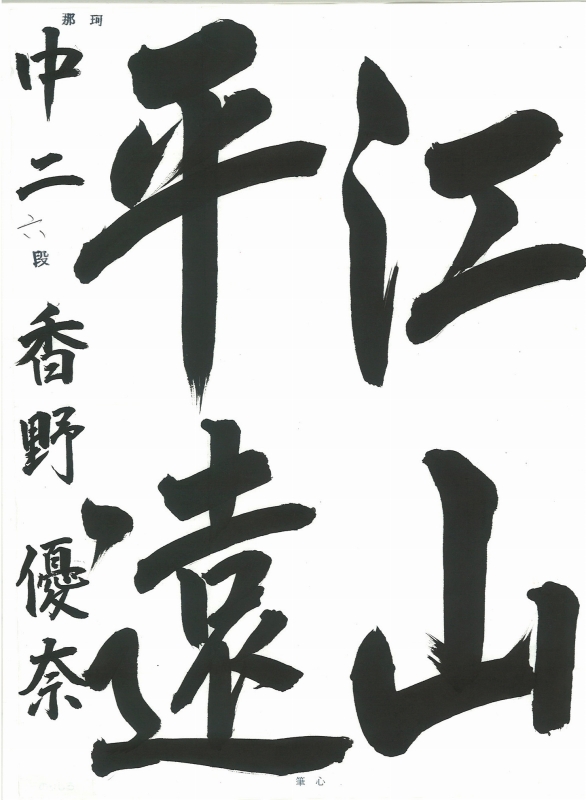 江山
平遠
那珂
中二 六段 香野 優奈
心筆